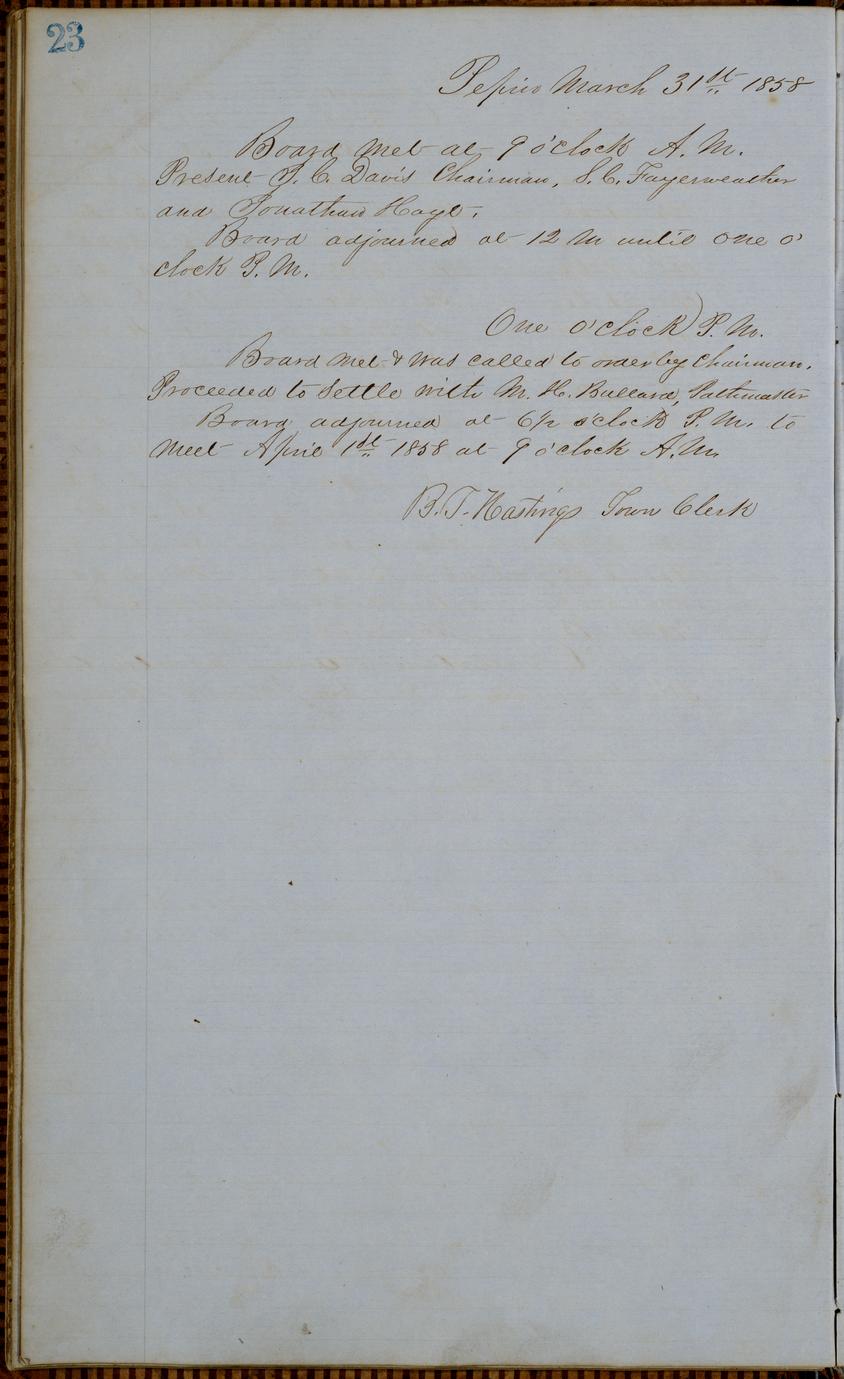 23
Pepin March 31st 1858
Board met at 9 o'clock A. M.
Present S. C. Davis Chairman, S. C. Fayerweather
and Jonathan Hoyt.
Board adjourned at 12 M until one o'
clock P. M.
One o'clock P. M.
Board met & was called to order by Chairman.
Proceeded to Settle with M. H. Bullard, Pathmaster
Board adjourned at 6 1/2 o'clock P. M. to
meet April 1st 1858 at 9 o'clock A. M.
B. T. Hastings Town Clerk